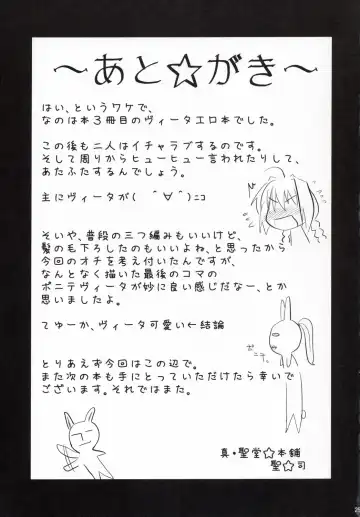 ～あと☆がき～
はい、というワケで、
なのは本3冊目のヴィータエロ本でした。
この後も二人はイチャラブするのです。
そして周りからヒューヒュー言われたりして、
あたふたするんでしょう。
主にヴィータが( ＾∀＾)ﾆｺ
そいや、普段の三つ編みもいいけど、
髪の毛下ろしたのもいいよね、と思ったから
今回のオチを考え付いたんですが、
なんとなく描いた最後のコマの
ポニテヴィータが妙に良い感じだなー、とか
思いましたよ。
てゆーか、ヴィータ可愛い←結論
ポニテ。
とりあえず今回はこの辺で。
また次の本も手にとっていただけたら幸いで
ございます。それではまた。
真・聖堂☆本舗
聖☆司